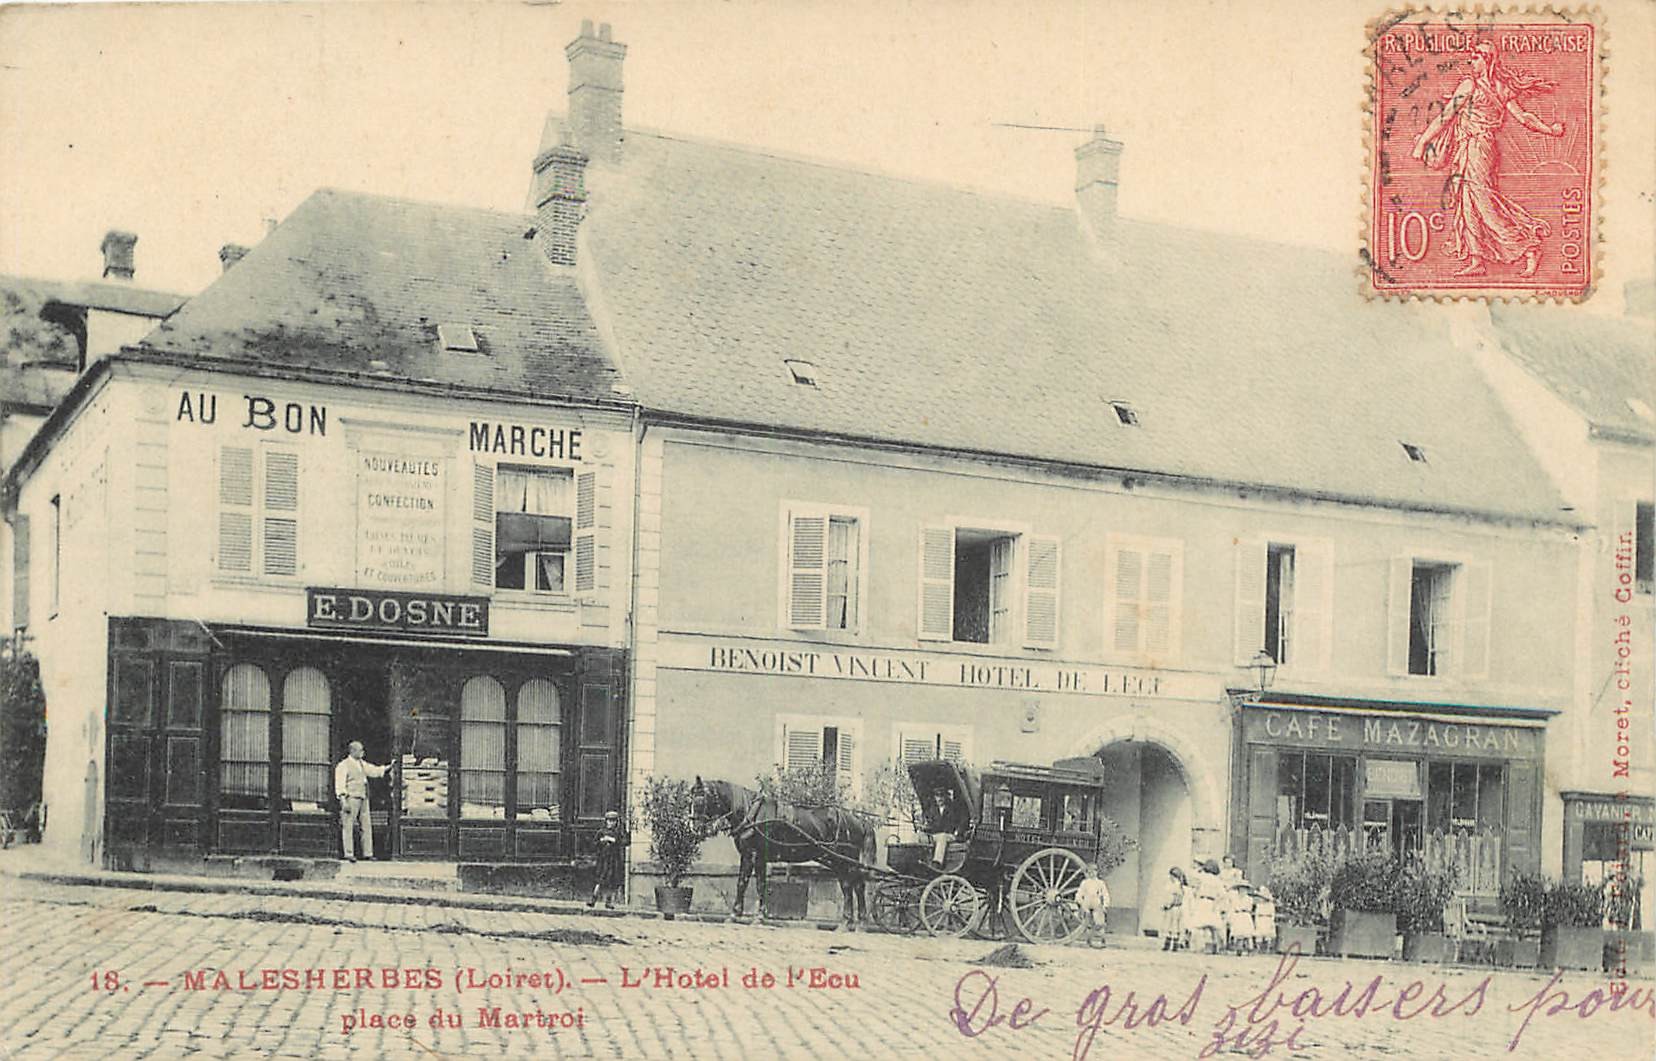 RÉPUBLIQUE FRANÇAISE
10c
POSTES
AU BON MARCHÉ
NOUVEAUTÉS
CONFECTION
ET COUVERTURES
E. DOSNE
BENOIST VINCENT HOTEL DE L'ECU
CAFÉ MAZAGRAN
BENOIST
Moret, cliché Coffin
18. — MALESHERBES (Loiret). — L'Hotel de l'Ecu
place du Martroi
De gros baisers pour
zizi